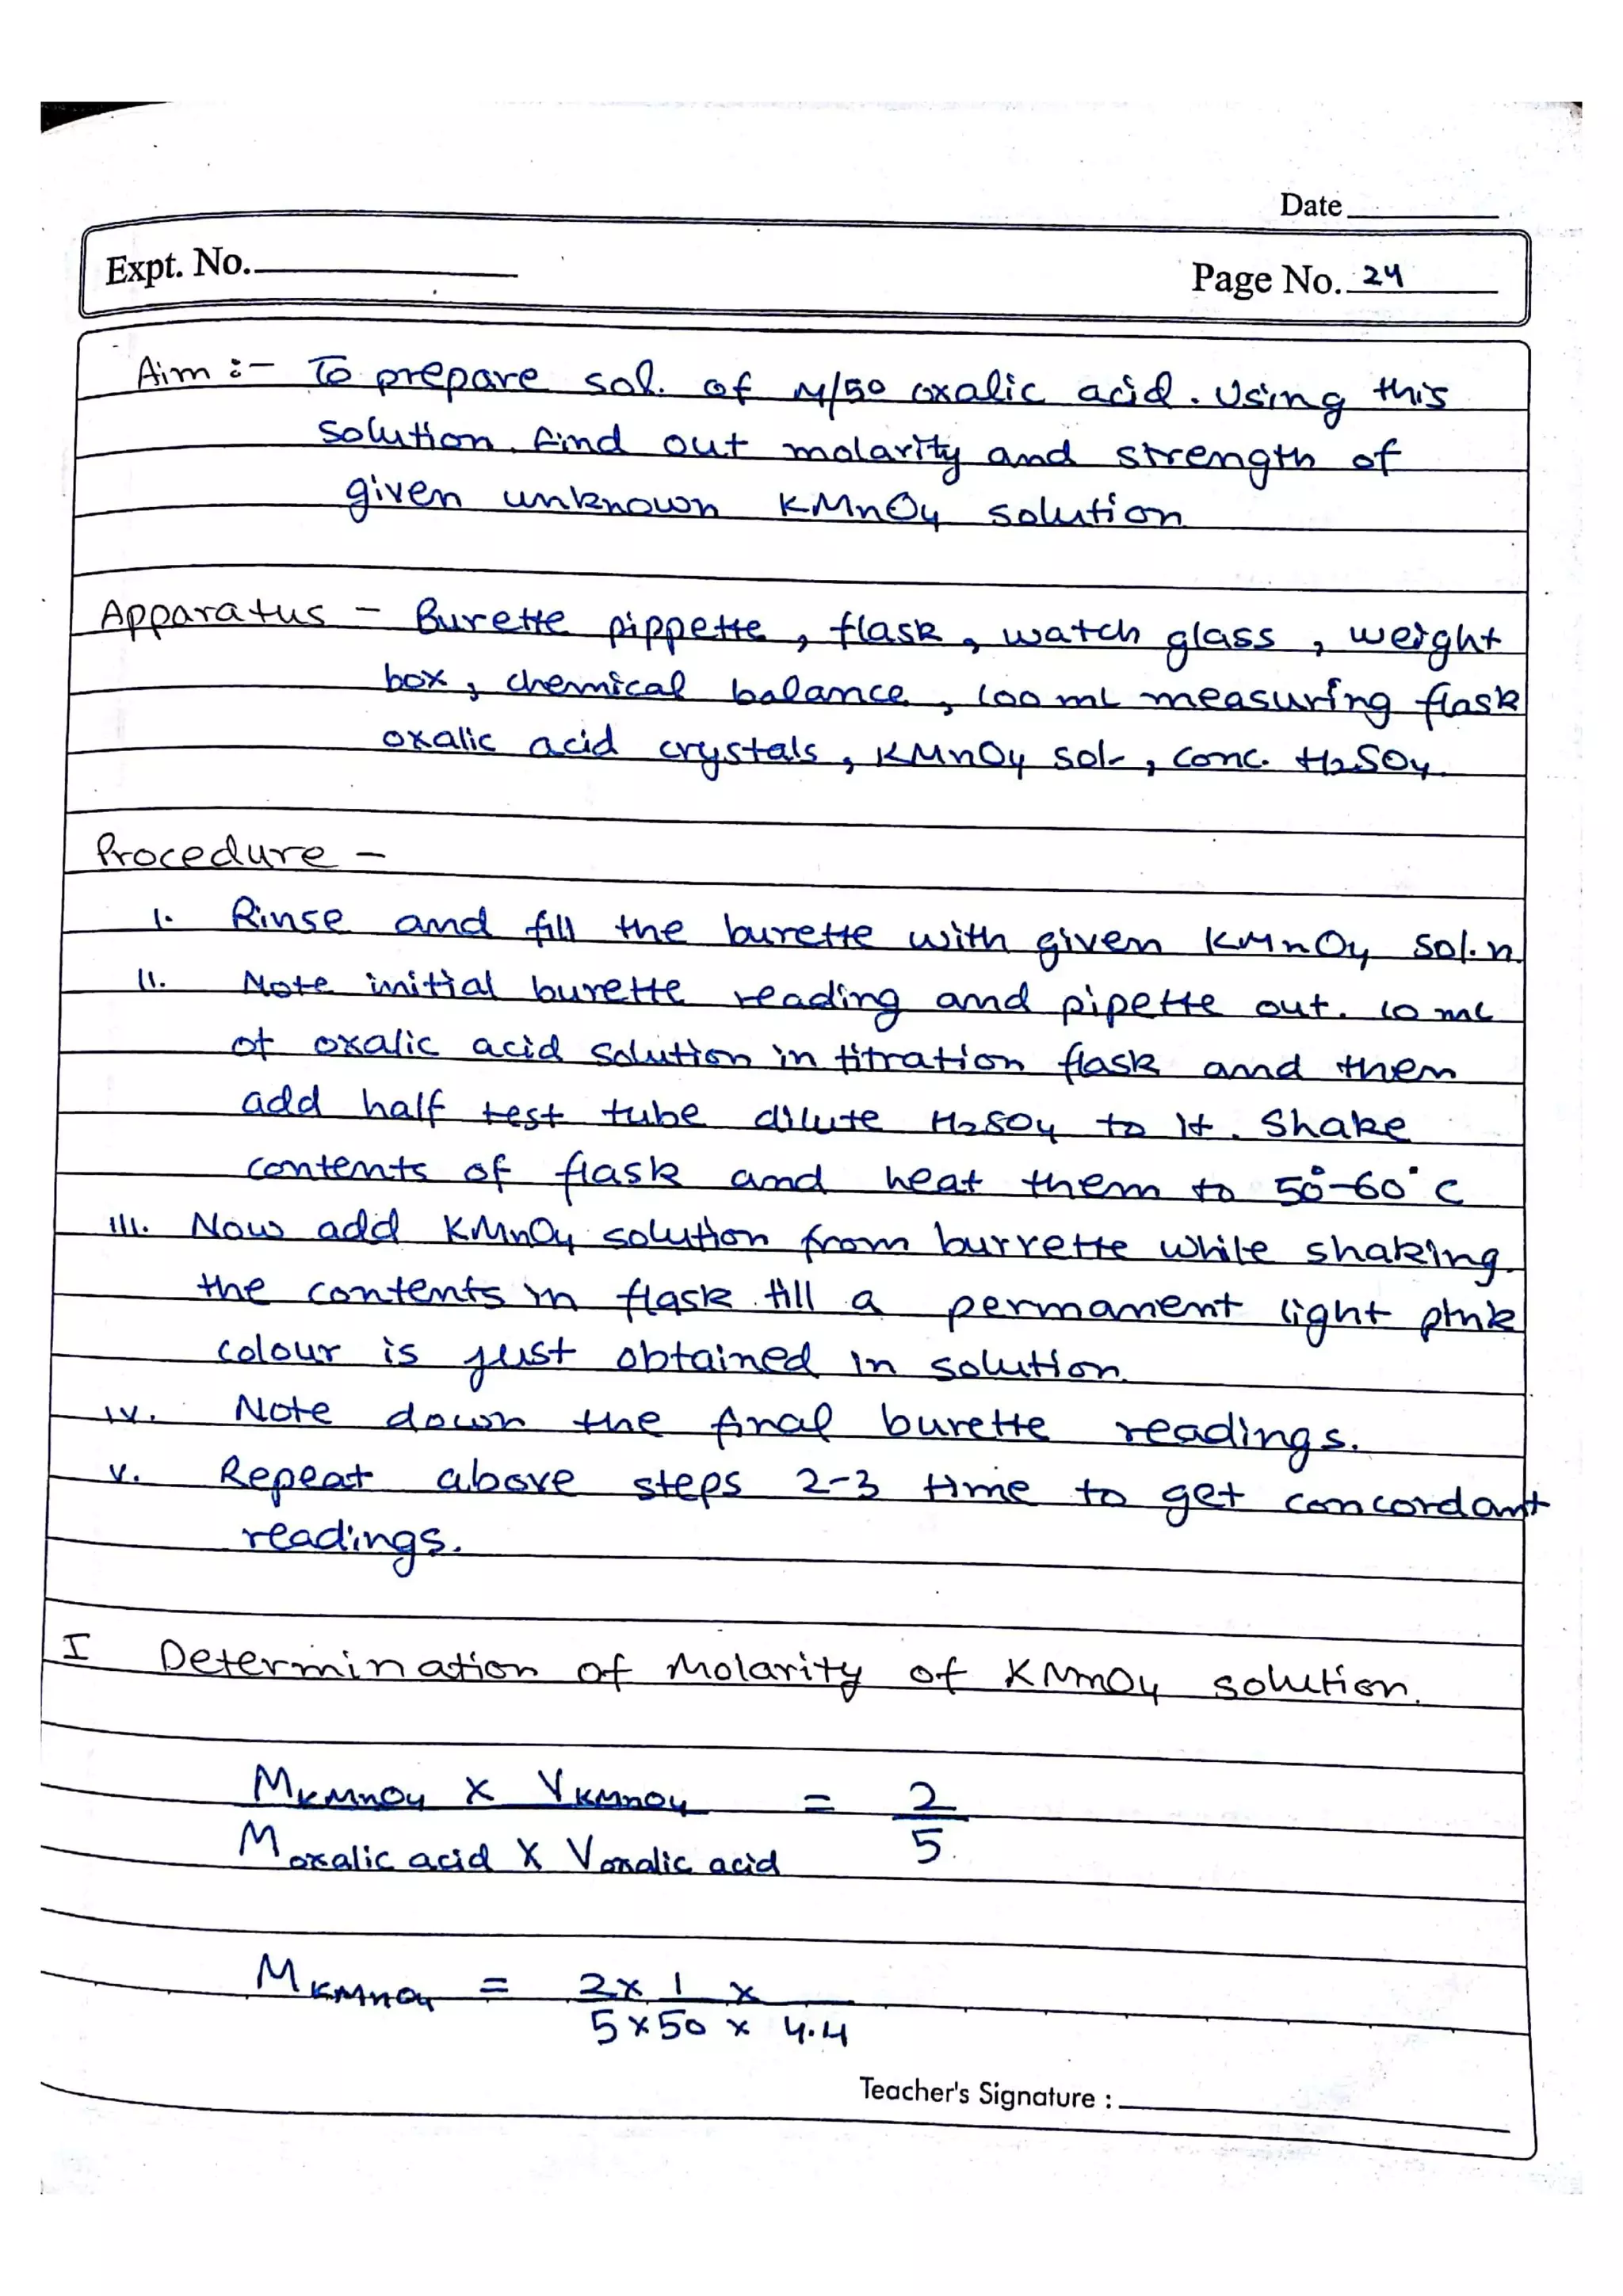 Date
Expt. No.
Page No. 24
Aim :- To prepare sol. of M/50 oxalic acid. Using this
solution find out molarity and strength of
given unknown KMnO4 solution
Apparatus - Burette pippette, flask, watch glass, weight
box, chemical balance, 100 mL measuring flask
oxalic acid crystals, KMnO4 sol-, conc. H2SO4.
Procedure -
i. Rinse and fill the burette with given KMnO4 sol.n
ii. Note initial burette reading and pipette out. 10 mL
of oxalic acid solution in titration flask and then
add half test tube dilute H2SO4 to it. Shake
contents of flask and heat them to 50°-60°C
iii. Now add KMnO4 solution from burrette while shaking
the contents in flask till a permanent light pink
colour is just obtained in solution.
iv. Note down the final burette readings.
v. Repeat above steps 2-3 time to get concordant
readings.
I Determination of Molarity of KMnO4 solution.
MKMnO4 x VKMnO4 = 2
Moxalic acid x Voxalic acid 5
MKMnO4 = 2 x 1 x
5 x 50 x 4.4
Teacher's Signature :